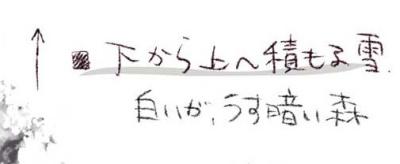 ■ 下から上へ積もる雪.
白いが、うす暗い森